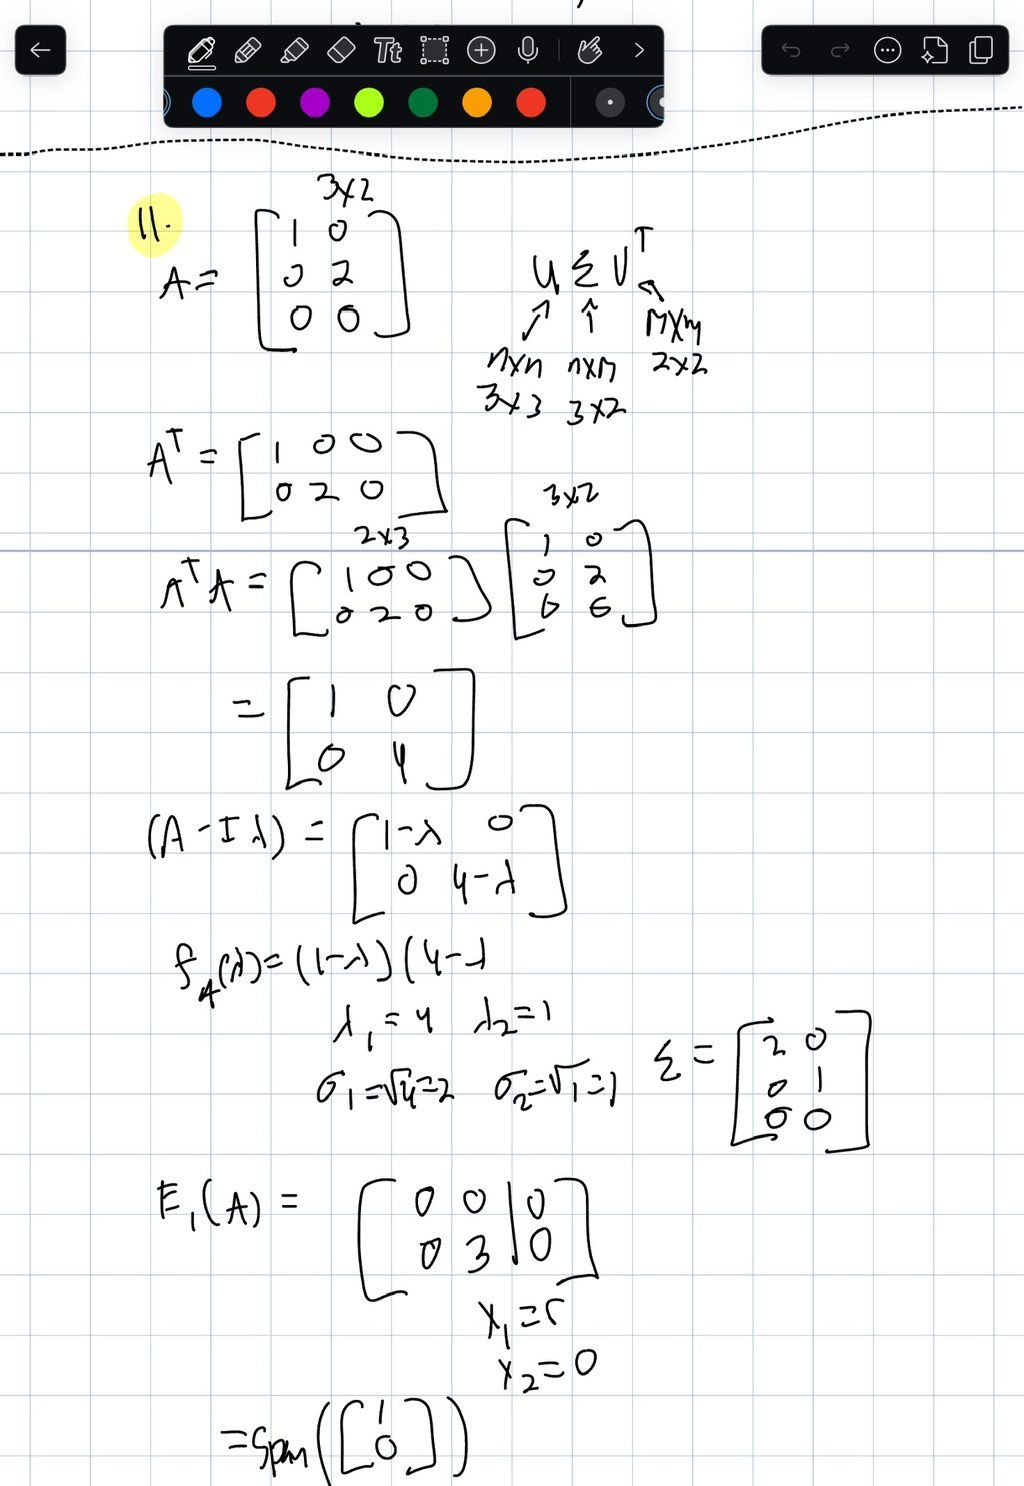 Tt
11.
3x2
A = [1 0
0 2
0 0]
U Σ V^T
nxn nxm mxm
3x3 3x2 2x2
A^T = [1 0 0
0 2 0]
2x3 3x2
A^T A = [1 0 0
0 2 0] [1 0
0 2
0 0]
= [1 0
0 4]
(A - Iλ) = [1-λ 0
0 4-λ]
f_A(λ) = (1-λ)(4-λ
λ₁ = 4 λ₂ = 1
σ₁ = √4 = 2 σ₂ = √1 = 1 Σ = [2 0
0 1
0 0]
E₁(A) = [0 0 | 0
0 3 | 0]
x₁ = r
x₂ = 0
= Span([1
0])